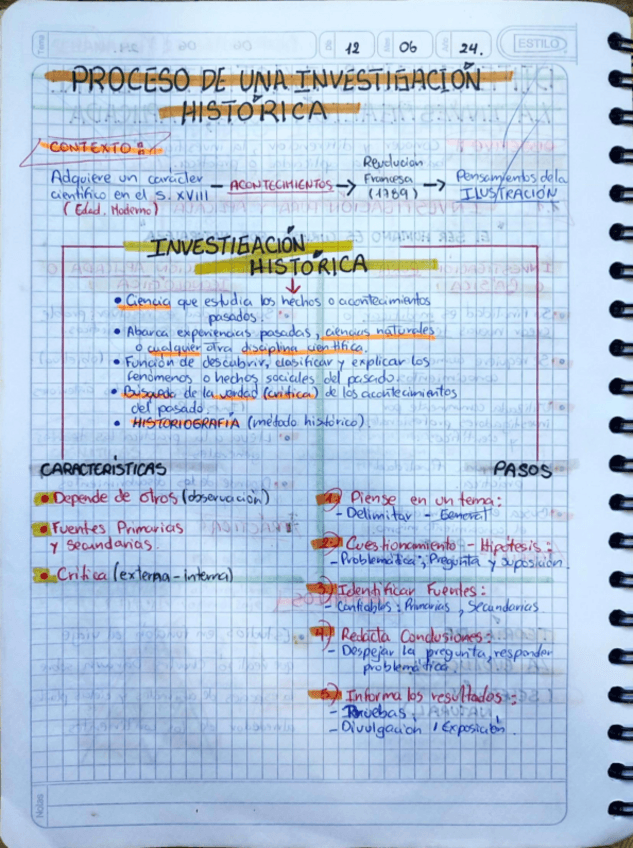 Tema
Día 12 Mes 06 Año 24.
ESTILO
PROCESO DE UNA INVESTIGACIÓN
HISTÓRICA
CONTEXTO:
Adquiere un carácter
científico en el S. XVIII
(Edad. Moderno)
— ACONTECIMIENTOS →
Revolucion
Francesa
(1789) →
Pensamientos de la
ILUSTRACIÓN
INVESTIGACIÓN
HISTÓRICA
• Ciencia que estudia los hechos o acontecimientos
pasados.
• Abarca experiencias pasadas, ciencias naturales
o cualquier otra disciplina científica.
• Función de descubrir, clasificar y explicar los
fenómenos o hechos sociales del pasado.
• Búsqueda de la verdad (crítica) de los acontecimientos
del pasado.
• HISTORIOGRAFÍA (método histórico).
CARACTERÍSTICAS
• Depende de otros (observación)
• Fuentes Primarias
y secundarias.
• Crítica (externa - interna)
PASOS
1) Piense en un tema:
- Delimitar - General
2) Cuestionamiento - Hipótesis:
- Problemática, Pregunta y suposición.
3) Identificar Fuentes:
- Confiables: Primarias, Secundarias
4) Redacta Conclusiones:
- Despejar la pregunta, responder
problemática.
5) Informa los resultados:
- Pruebas.
- Divulgación / Exposición.
Notas